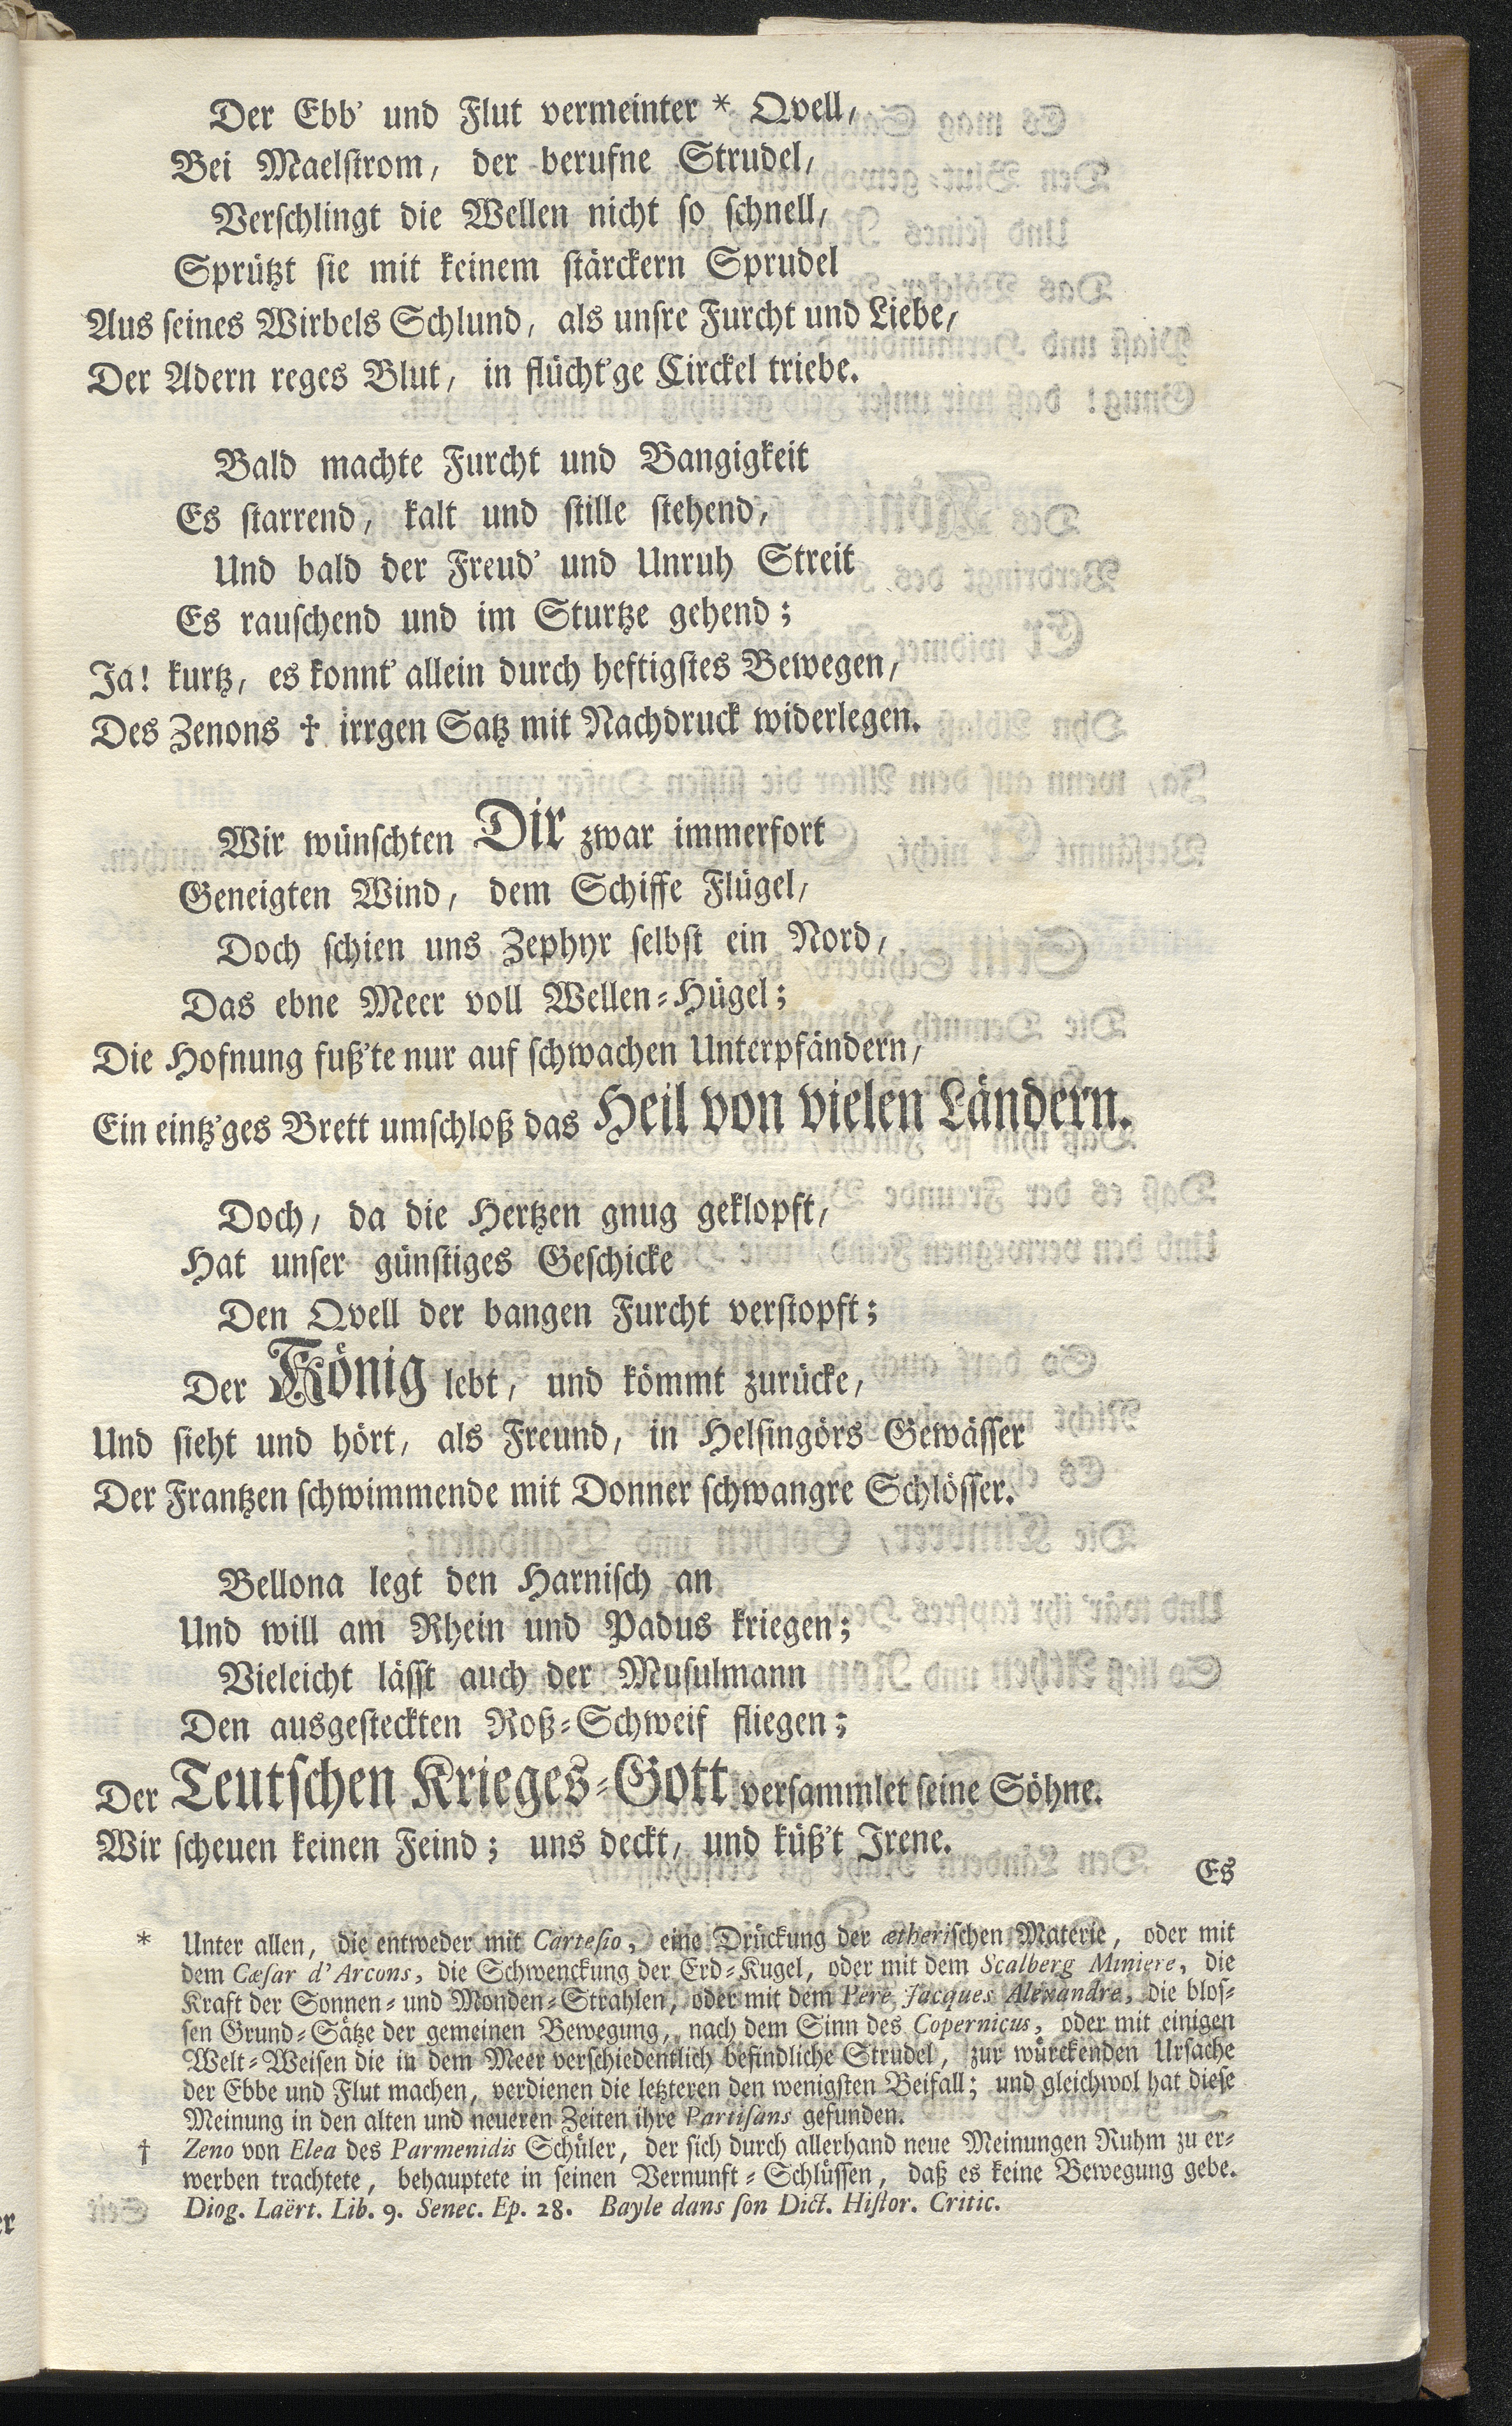 Der Ebb' und Flut vermeinter * Qvell,
Bei Maelstrom, der berufne Strudel,
Verschlingt die Wellen nicht so schnell,
Sprützt sie mit keinem stärckern Sprudel
Aus seines Wirbels Schlund, als unsre Furcht und Liebe,
Der Adern reges Blut, in flücht'ge Circkel triebe.
Bald machte Furcht und Bangigkeit
Es starrend, kalt und stille stehend,
Und bald der Freud' und Unruh Streit
Es rauschend und im Sturtze gehend;
Ja! kurtz, es konnt' allein durch heftigstes Bewegen,
Des Zenons † irrgen Satz mit Nachdruck widerlegen.
Wir wünschten Dir zwar immerfort
Geneigten Wind, dem Schiffe Flügel,
Doch schien uns Zephyr selbst ein Nord,
Das ebne Meer voll Wellen-Hügel;
Die Hofnung fuß'te nur auf schwachen Unterpfändern,
Ein eintz'ges Brett umschloß das Heil von vielen Ländern.
Doch, da die Hertzen gnug geklopft,
Hat unser günstiges Geschicke
Den Qvell der bangen Furcht verstopft;
Der König lebt, und kömmt zurücke,
Und sieht und hört, als Freund, in Helsingörs Gewässer
Der Frantzen schwimmende mit Donner schwangre Schlösser.
Bellona legt den Harnisch an
Und will am Rhein und Padus kriegen;
Vieleicht lässt auch der Musulmann
Den ausgesteckten Roß-Schweif fliegen;
Der Teutschen Krieges-Gott versammlet seine Söhne.
Wir scheuen keinen Feind; uns deckt, und küß't Irene.
Es
* Unter allen, die entweder mit Cartesio, eine Drückung der ætherischen Materie, oder mit
dem Cæsar d'Arcons, die Schwenckung der Erd-Kugel, oder mit dem Scalberg Miniere, die
Kraft der Sonnen- und Monden-Strahlen, oder mit dem Pere Jacques Alexandre, die blos-
sen Grund-Sätze der gemeinen Bewegung, nach dem Sinn des Copernicus, oder mit einigen
Welt-Weisen die in dem Meer verschiedentlich befindliche Strudel, zur würckenden Ursache
der Ebbe und Flut machen, verdienen die letzteren den wenigsten Beifall; und gleichwol hat diese
Meinung in den alten und neueren Zeiten ihre Partisans gefunden.
† Zeno von Elea des Parmenidis Schüler, der sich durch allerhand neue Meinungen Ruhm zu er-
werben trachtete, behauptete in seinen Vernunft-Schlüssen, daß es keine Bewegung gebe.
Diog. Laërt. Lib. 9. Senec. Ep. 28. Bayle dans son Dict. Histor. Critic.